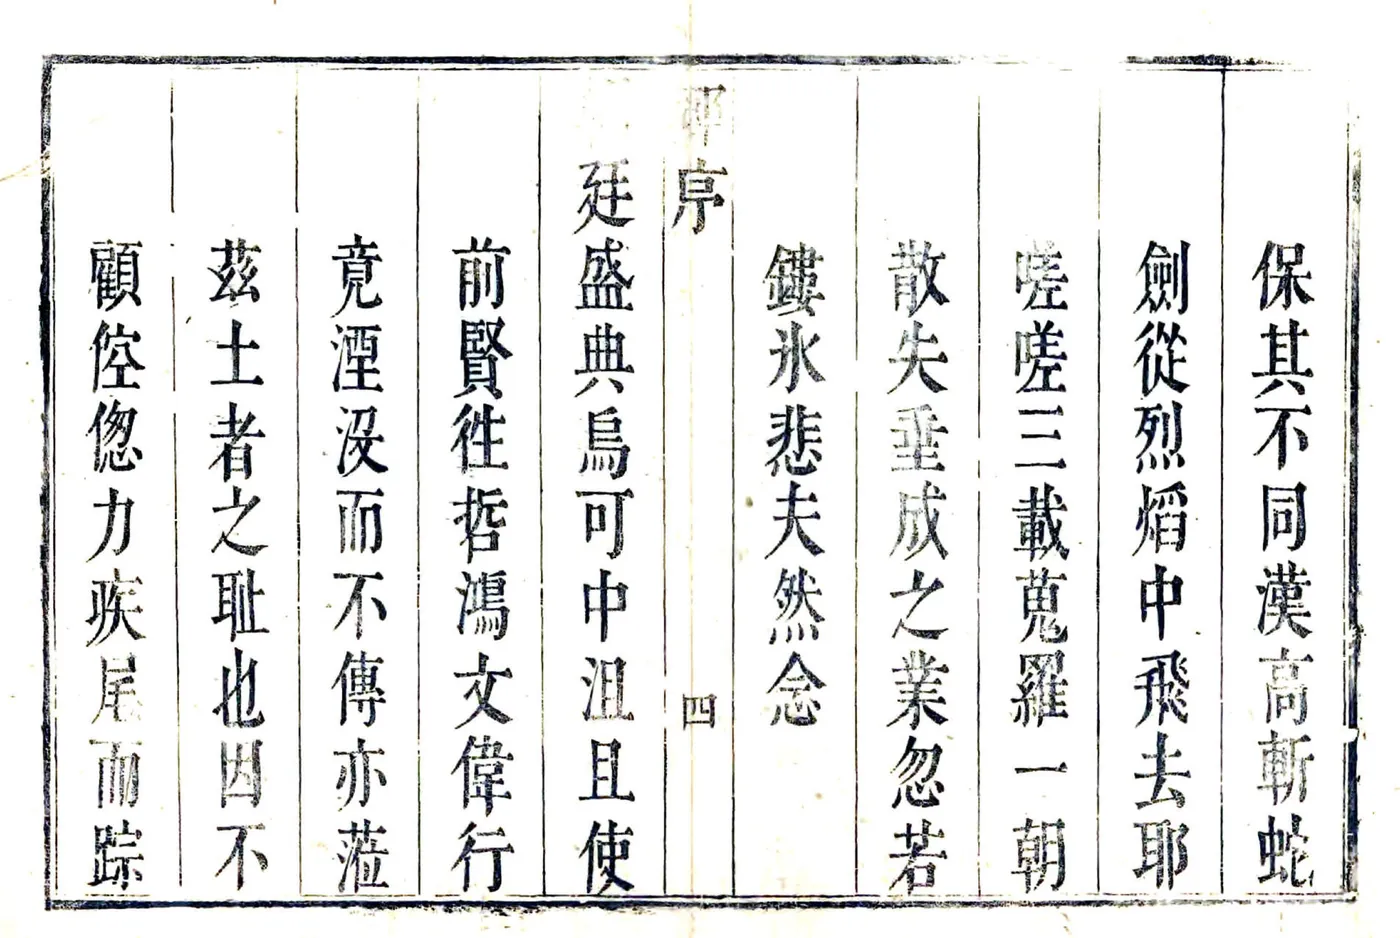 保其不同漢高斬蛇
劍從烈熖中飛去耶
嗟嗟三載蒐羅一朝
散失垂成之業忽若
鏤氷悲夫然念
序
四
廷盛典烏可中沮且使
前賢徃哲鴻文偉行
竟湮沒而不傳亦蒞
茲土者之耻也因不
顧倥偬力疾尾而踪